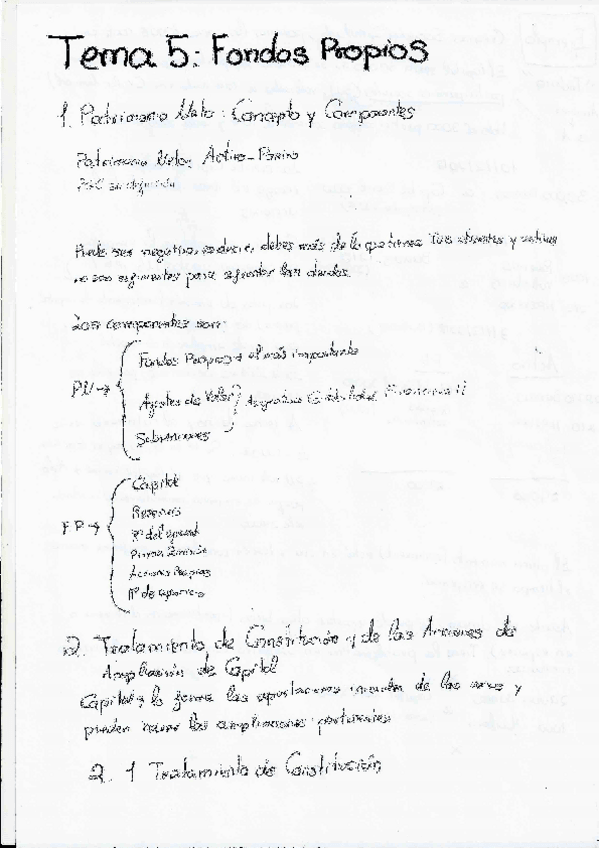 Tema 5: Fondos Propios
1. Patrimonio Neto: Concepto y Componentes
Patrimonio Neto: Activo - Pasivo
PGC su definición
Puede ser negativo, es decir, debes más de lo que tienes. Tus
no son suficientes para afrontar las deudas.
Los componentes son:
PN → Fondos Propios → el más importante
Ajustes de Valor } Asignatura Contabilidad Financiera II
Subvenciones
FP → Capital
Reservas
Rº del ejercicio
Prima Emisión
Acciones Propias
2. Tratamiento de Constitución y de las Acciones de
Ampliación de Capital
Capital: lo forma las aportaciones de los socios y
pueden las ampliaciones
2. 1 Tratamiento de Constitución